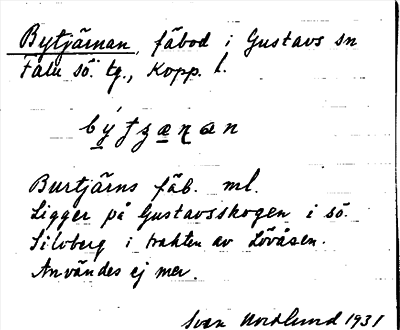 Bytjärnan, fäbod i Gustavs sn
Falu sö. tg., Kopp. l.
Burtjärns fäb. ml.
Ligger på Gustavsskogen i sö.
Silvberg i trakten av Lövåsen.
Användes ej mer.
Sven Nordlund 1931